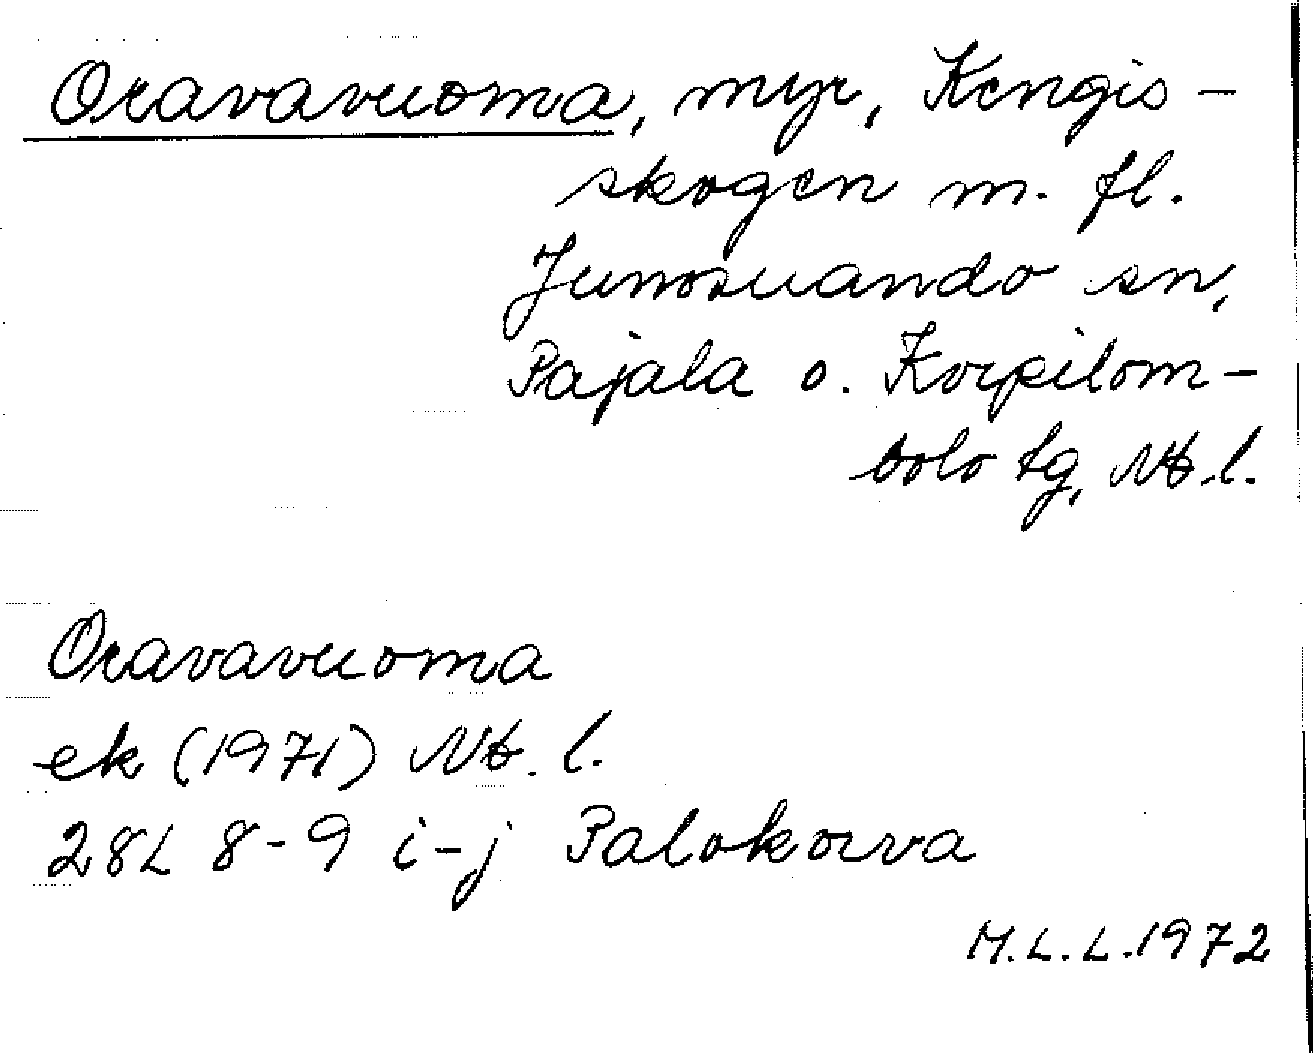 Oravavuoma, myr, Kengis-
skogen m. fl.
Junosuando sn,
Pajala o. Korpilom-
bolo tg, Nb. l.
Oravavuoma
ek (1971) Nb. l.
28L 8-9 i-j Palokorva
M.L.L. 1972